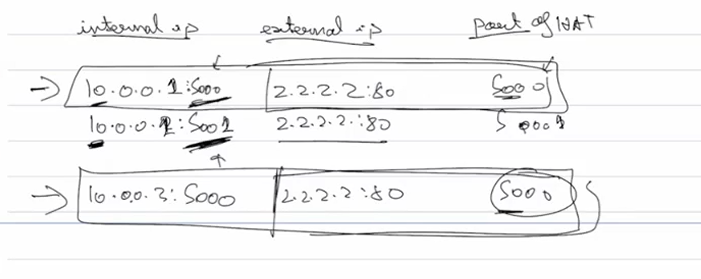 internal ip external ip port of NAT
10.0.0.1:5000 2.2.2.2:80 5000
10.0.0.2:5001 2.2.2.2:80 5001
10.0.0.3:5000 2.2.2.2:80 5000